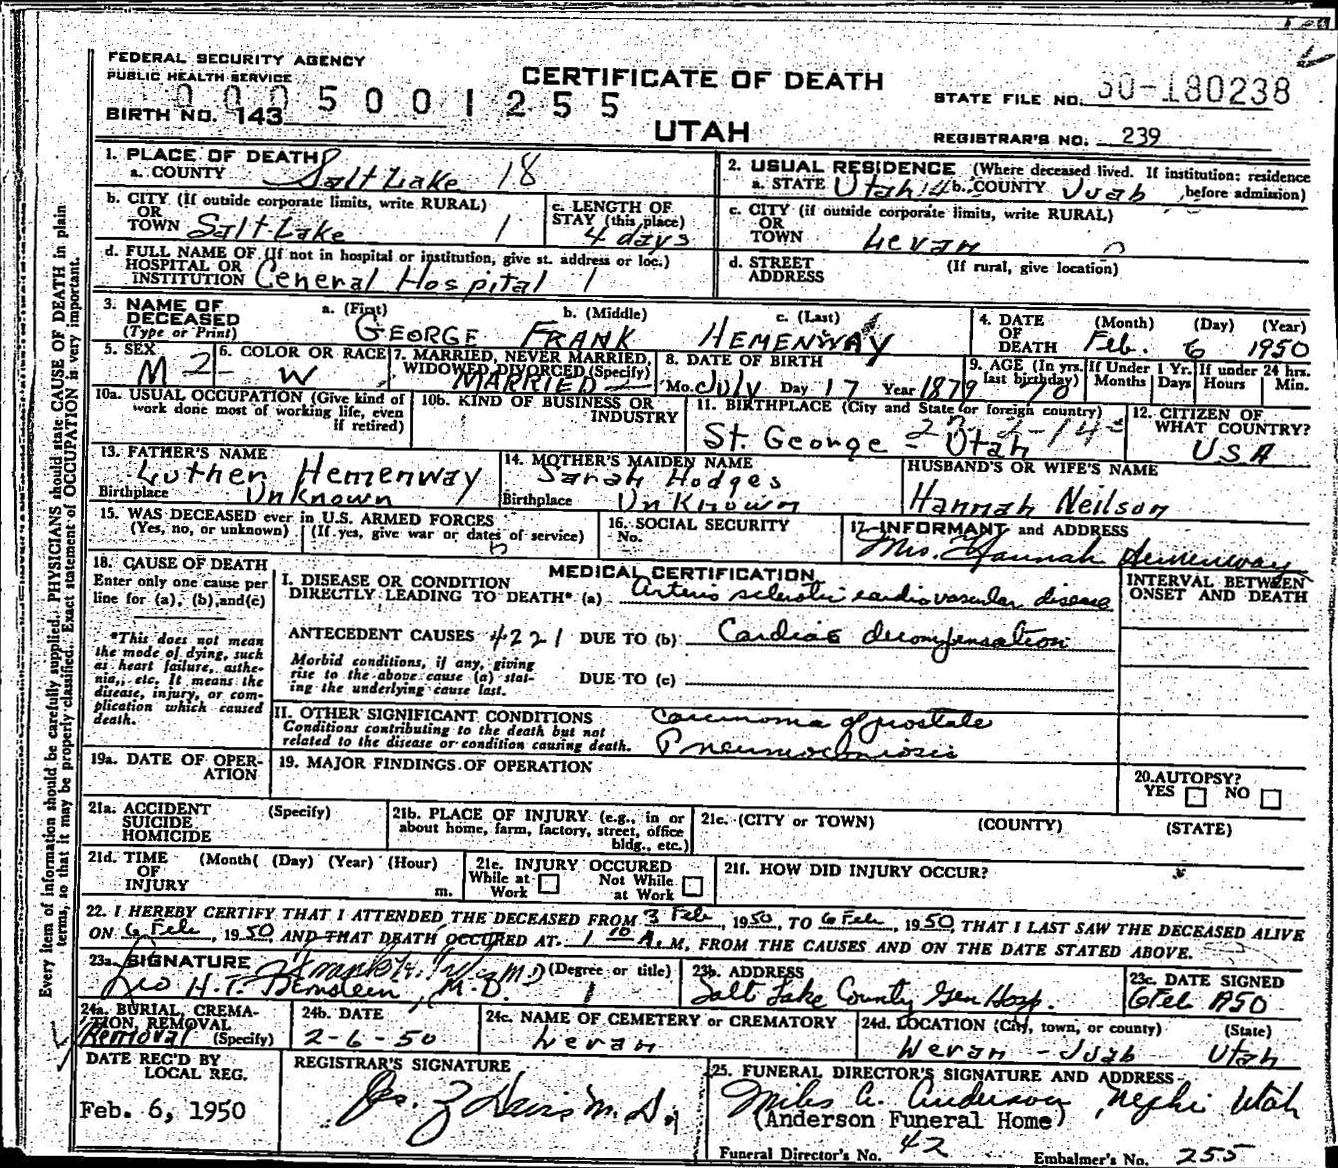 FEDERAL SECURITY AGENCY
PUBLIC HEALTH SERVICE
0005001255
BIRTH NO. 143
CERTIFICATE OF DEATH
UTAH
STATE FILE NO. 50-180238
REGISTRAR'S NO. 239
1. PLACE OF DEATH
a. COUNTY Salt Lake 18
2. USUAL RESIDENCE (Where deceased lived. If institution: residence before admission)
a. STATE Utah 14 b. COUNTY Juab
b. CITY (If outside corporate limits, write RURAL)
OR TOWN Salt Lake 1
c. LENGTH OF STAY (this place)
4 days
c. CITY (if outside corporate limits, write RURAL)
OR TOWN Levan
d. FULL NAME OF (If not in hospital or institution, give st. address or loc.)
HOSPITAL OR INSTITUTION General Hospital 1
d. STREET ADDRESS (If rural, give location)
3. NAME OF DECEASED (Type or Print)
a. (First) b. (Middle) c. (Last)
GEORGE FRANK HEMENWAY
4. DATE OF DEATH (Month) (Day) (Year)
Feb. 6 1950
5. SEX
M 2
6. COLOR OR RACE
W
7. MARRIED, NEVER MARRIED, WIDOWED, DIVORCED (Specify)
MARRIED
8. DATE OF BIRTH
Mo. July Day 17 Year 1879
9. AGE (In yrs. last birthday) 70
If Under 1 Yr. Months Days
If under 24 hrs. Hours Min.
10a. USUAL OCCUPATION (Give kind of work done most of working life, even if retired)
10b. KIND OF BUSINESS OR INDUSTRY
11. BIRTHPLACE (City and State or foreign country)
St. George - Utah
12. CITIZEN OF WHAT COUNTRY?
USA
13. FATHER'S NAME
Luther Hemenway
Birthplace Unknown
14. MOTHER'S MAIDEN NAME
Sarah Hodges
Birthplace Unknown
HUSBAND'S OR WIFE'S NAME
Hannah Neilson
15. WAS DECEASED ever in U.S. ARMED FORCES
(Yes, no, or unknown) (If yes, give war or dates of service)
16. SOCIAL SECURITY No.
17. INFORMANT and ADDRESS
Mrs. Hannah Hemenway
18. CAUSE OF DEATH
Enter only one cause per line for (a), (b), and (c)
*This does not mean the mode of dying, such as heart failure, asthenia, etc. It means the disease, injury, or complication which caused death.
MEDICAL CERTIFICATION
INTERVAL BETWEEN ONSET AND DEATH
I. DISEASE OR CONDITION DIRECTLY LEADING TO DEATH* (a) Arterio sclerotic cardiovascular disease
ANTECEDENT CAUSES 4221 DUE TO (b) Cardiac decompensation
Morbid conditions, if any, giving rise to the above cause (a) stating the underlying cause last.
DUE TO (c)
II. OTHER SIGNIFICANT CONDITIONS
Conditions contributing to the death but not related to the disease or condition causing death.
Carcinoma of prostate
Pneumoconiosis
19a. DATE OF OPERATION
19. MAJOR FINDINGS OF OPERATION
20. AUTOPSY?
YES NO
21a. ACCIDENT SUICIDE HOMICIDE (Specify)
21b. PLACE OF INJURY (e.g., in or about home, farm, factory, street, office bldg., etc.)
21c. (CITY or TOWN) (COUNTY) (STATE)
21d. TIME OF INJURY (Month( (Day) (Year) (Hour) m.
21e. INJURY OCCURED
While at Work Not While at Work
21f. HOW DID INJURY OCCUR?
22. I HEREBY CERTIFY THAT I ATTENDED THE DECEASED FROM 3 Feb, 1950, TO 6 Feb, 1950 THAT I LAST SAW THE DECEASED ALIVE
ON 6 Feb, 1950, AND THAT DEATH OCCURED AT 1 10 A.M, FROM THE CAUSES AND ON THE DATE STATED ABOVE.
23a. SIGNATURE (Degree or title)
Leo H. T. Bernstein, M.D. 1
23b. ADDRESS
Salt Lake County Gen Hosp.
23c. DATE SIGNED
6 Feb 1950
24a. BURIAL, CREMATION, REMOVAL (Specify)
Removal
24b. DATE
2-6-50
24c. NAME OF CEMETERY or CREMATORY
Levan
24d. LOCATION (City, town, or county) (State)
Levan - Juab Utah
DATE REC'D BY LOCAL REG.
Feb. 6, 1950
REGISTRAR'S SIGNATURE
25. FUNERAL DIRECTOR'S SIGNATURE AND ADDRESS
Miles A. Anderson Nephi Utah
(Anderson Funeral Home)
Funeral Director's No. 42 Embalmer's No. 255
Every item of information should be carefully supplied. PHYSICIANS should state CAUSE OF DEATH in plain
terms, so that it may be properly classified. Exact statement of OCCUPATION is very important.